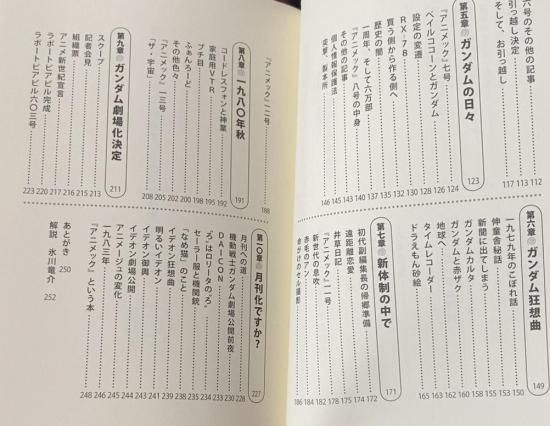 六号のその他の記事 112
引っ越し決定 113
そして、お引っ越し 117
第五章 ガンダムの日々 123
『アニメック』七号 124
ベイルココーンとガンダム
設定の変遷
RX-78
買う側から作る側へ
歴史の闇
一周年、そして六万部
『アニメック』八号の中身
その他の記事
個人情報保護法
突撃、製本所 146
第六章 ガンダム狂想曲 149
一九七九年のこぼれ話 150
仲童舎秘話
新聞に出てしまう
ガンダムカルタ
ガンダムと赤ザク
地球へ
タイムレコーダー
ドラえもん砂絵 165
第七章 新体制の中で 171
初代副編集長の帰郷準備
遠距離恋愛
井草日記
『アニメック』一一号
新世代の息吹
赤毛のアン
命がけのセル撮影 186
『アニメック』一二号 188
第八章 一九八〇年秋 191
コードレスフォンと神業 192
家庭用VTR 195
プチ目 198
ふぁんろーど 200
その他色々 202
『アニメック』一三号 205
『ザ・宇宙』 208
第九章 ガンダム劇場化決定 211
スクープ 213
記者会見 215
組織票 216
アニメ新世紀宣言 217
ラポートビアビル完成 220
ラポートビアビル六〇三号 223
第一〇章 月刊化ですか? 227
月刊への道 228
機動戦士ガンダム劇場公開前夜 230
DAICON 233
"ろ"はロリータの"ろ" 234
セーラー服と機関銃 235
「なめ猫」のこと 236
イデオン狂想曲 238
明るいイデオン 239
イデオン御輿 240
イデオン劇場公開 241
アニメージュの変化 244
一九八三年 246
『アニメック』という本 248
あとがき 250
解説 氷川竜介 252